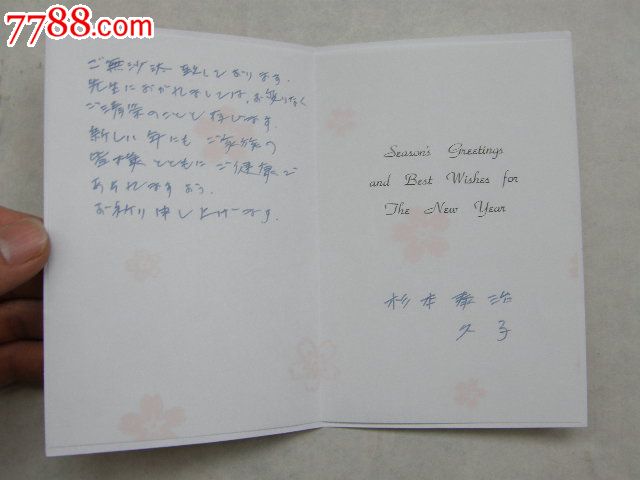 7788.com
ご無沙汰致しております。
先生におかれましては、お変りなく
ご清栄のことと存じます。
新しい年にも ご家族の
皆様とともに ご健康で
あられますよう、
お祈り申し上げます。
Season's Greetings
and Best Wishes for
The New Year
杉本 泰治
久子